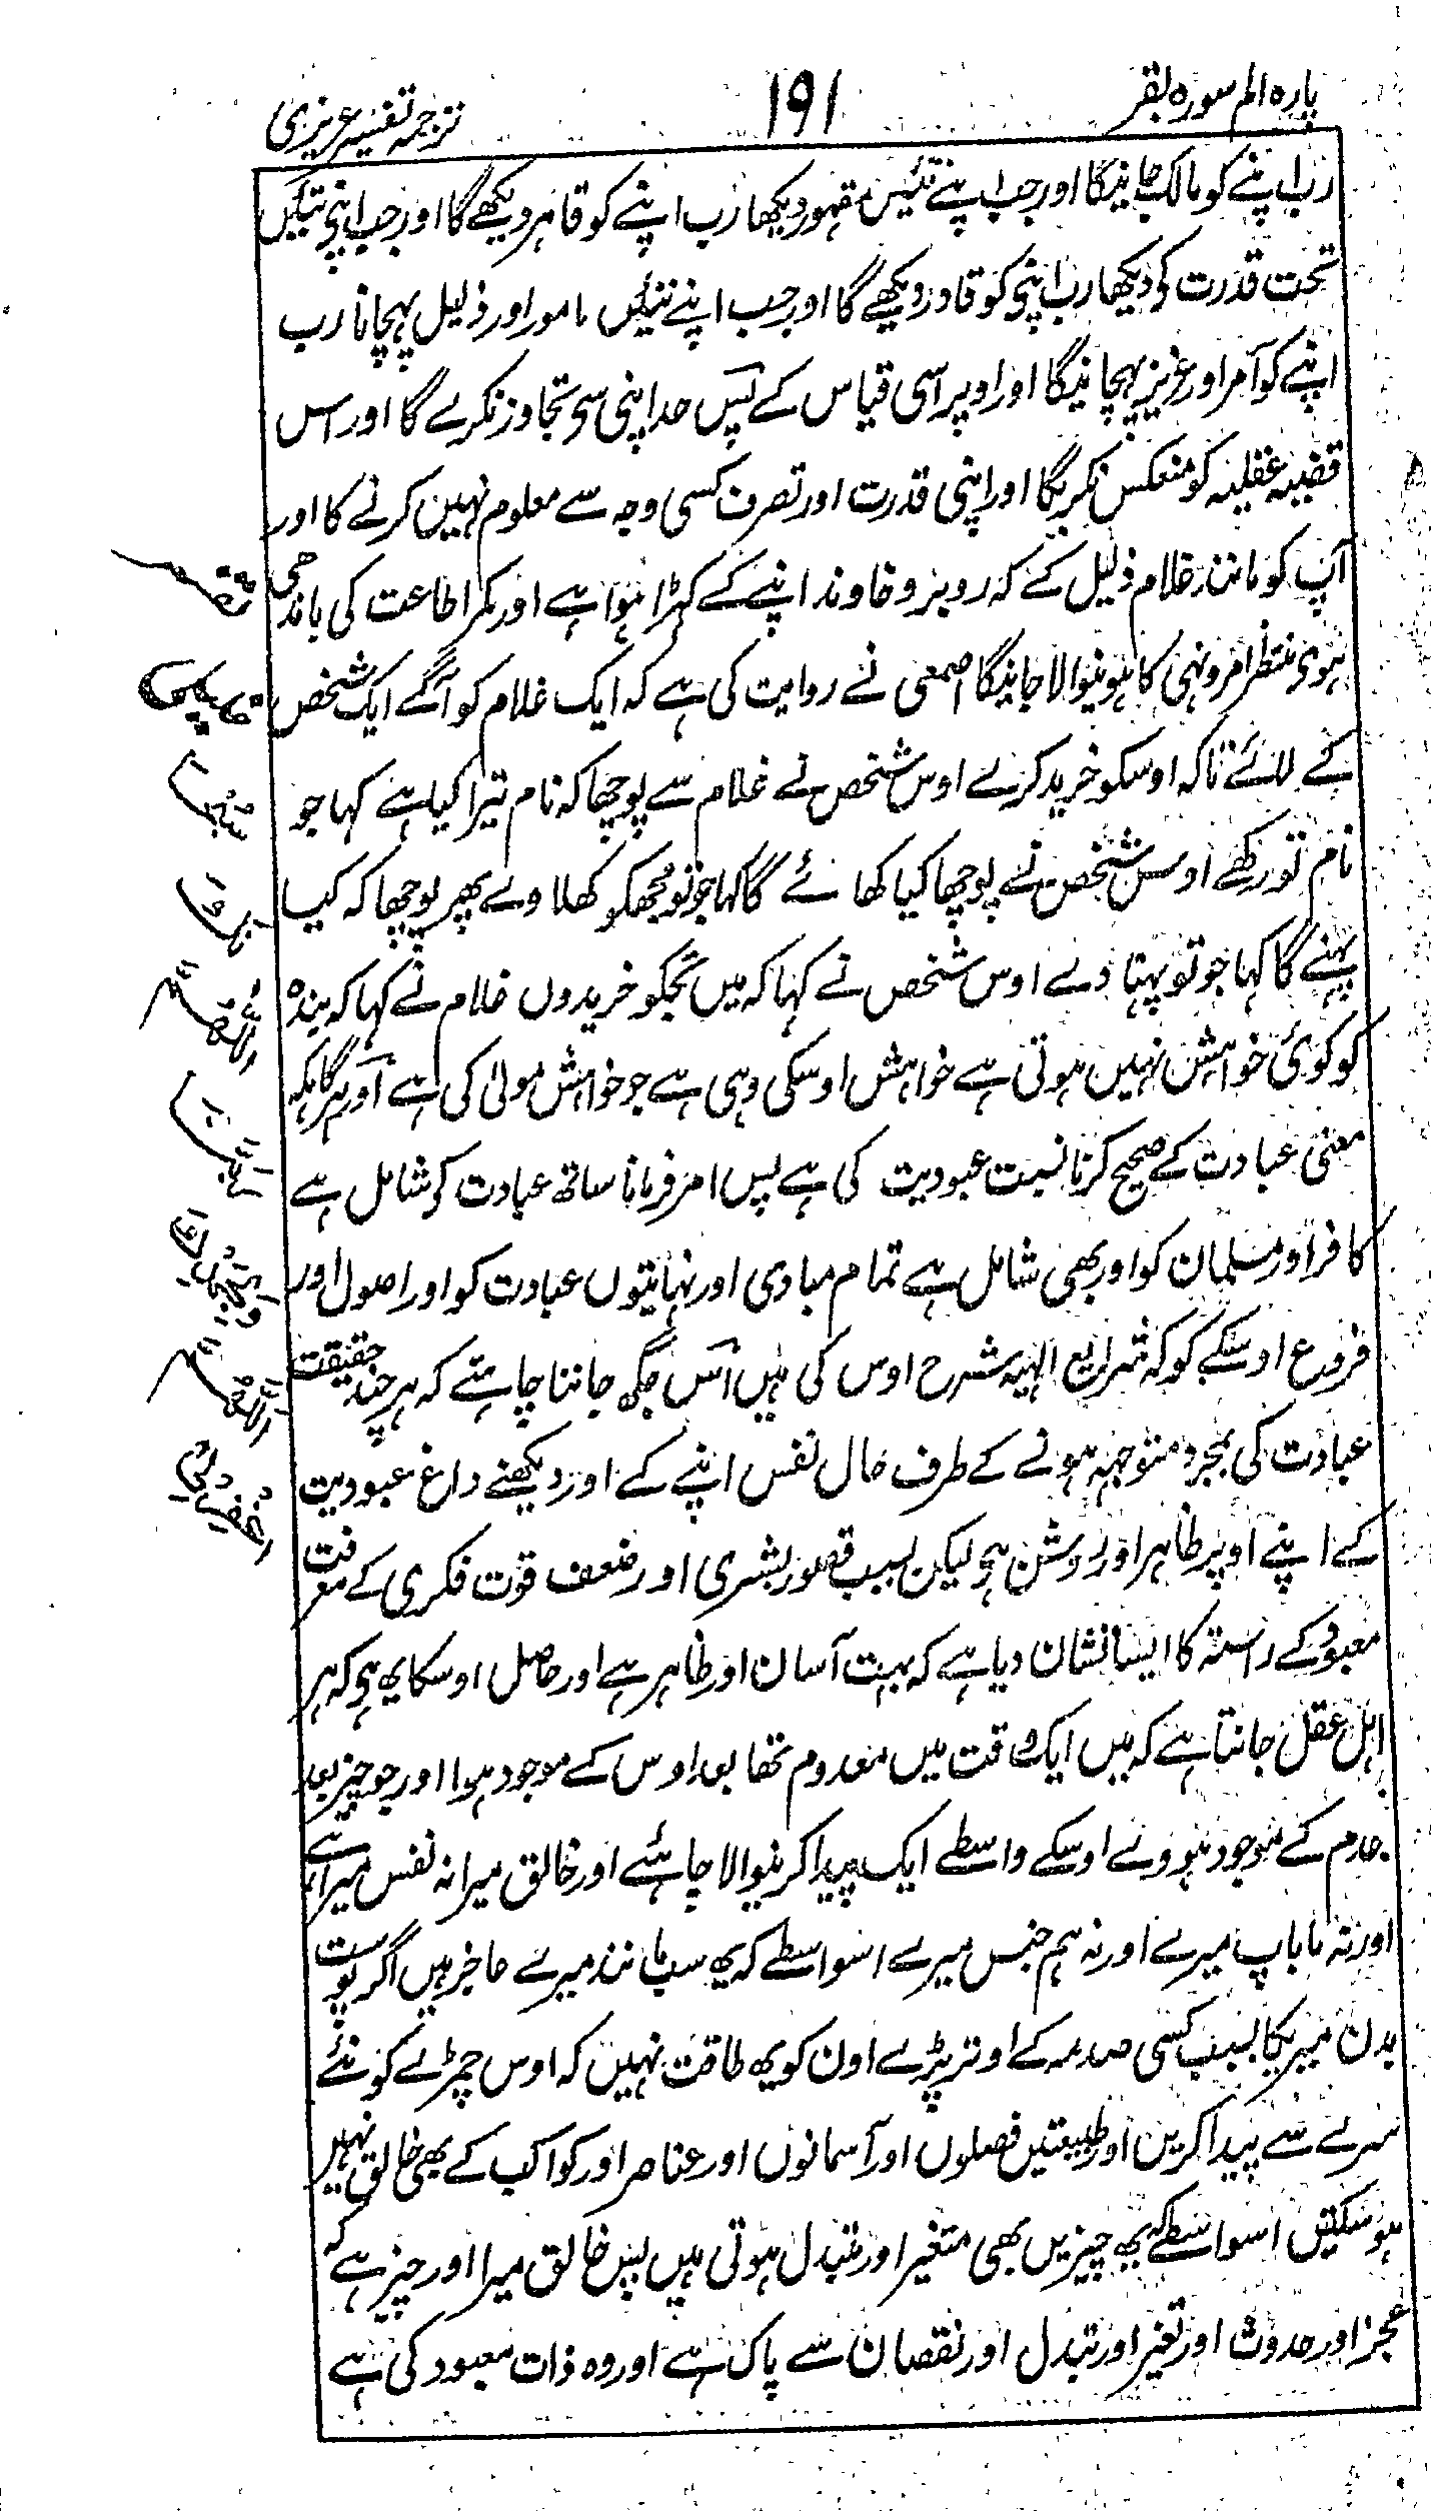 پارہ الم سورہ بقر
۱۹۱
ترجمہ تفسیر عزیزی
رب اپنے کو مالک جانیگا اور جب اپنے تئیں مقہور دیکھا رب اپنے کو قاہر دیکھے گا اور جب اپنی تئیں
تحت قدرت کی دیکھا رب اپنی کو قادر دیکھے گا اور جب اپنے تئیں مامور اور ذلیل پہچانا رب
اپنے کو آمر اور عزیز پہچانیگا اور اوپر اسی قیاس کے پس حد اپنی سی تجاوز نکرے گا اور اس
قضیہ عقلیہ کو منعکس نکریگا اور اپنی قدرت اور تصرف کسی وجہ سے معلوم نہیں کرنے کا اور
آپ کو مانند غلام ذلیل کے کہ روبرو خاوند اپنے کے کھڑا ہوا ہے اور کمر اطاعت کی باندھی
ہوی منتظر امر و نہی کا ہونیوالا جانیگا اصمعی نے روایت کی ہے کہ ایک غلام کو آگے ایک شخص
کے لائے تاکہ اوسکو خرید کرے اوس شخص نے غلام سے پوچھا کہ نام تیرا کیا ہے کہا جو
نام تو رکھے اوس شخص نے پوچھا کیا کھائے گا کہا جو تو مجھکو کھلاوے پھر پوچھا کہ کیا
پہنے گا کہا جو تو پہنا دے اوس شخص نے کہا کہ میں تجکو خریدوں غلام نے کہا کہ بندہ
کو کوئی خواہش نہیں ہوتی ہے خواہش اوسکی وہی ہے جو خواہش مولیٰ کی ہے اور ہرگاہکہ
معنی عبادت کے صحیح کرنا نسبت عبودیت کی ہے پس امر فرمانا ساتھ عبادت کو شامل ہے
کافر اور مسلمان کو اور بھی شامل ہے تمام مبادی اور نہایتوں عبادت کو اور اصول اور
فروع اوسکے کو کہ شرایع الہیہ شرح اوس کی ہیں اس جگہ جاننا چاہئے کہ ہر چند حقیقت
عبادت کی بمجرد متوجہ ہونے کے طرف حال نفس اپنے کے اور دیکھنے داغ عبودیت
کے اپنے اوپر ظاہر اور روشن ہی لیکن بسبب قصور بشری اور ضعف قوت فکری کے معرفت
معبود کے راستہ کا ایسا نشان دیا ہے کہ بہت آسان اور ظاہر ہے اور حاصل اوسکا یہ ہی کہ ہر
اہل عقل جانتا ہے کہ میں ایک وقت میں معدوم تھا بعد اوس کے موجود ہوا اور جو چیز بعد
عدم کے موجود ہووے اوسکے واسطے ایک پیدا کرنیوالا چاہئے اور خالق میرا نہ نفس میرا ہے
اور نہ ماباپ میرے اور نہ ہم جنس میرے اسواسطے کہ یہ سب مانند میرے عاجز ہیں اگر پوست
بدن میریکا بسبب کسی صدمہ کے اوتر پڑے اون کو یہ طاقت نہیں کہ اوس چمڑے کو نئے
سرے سے پیدا کریں اور طبیعتیں فصلوں اور آسمانوں اور عناصر اور کواکب کے بھی خالق نہیں
ہوسکتیں اسواسطے کہ یہ چیزیں بھی متغیر اور متبدل ہوتی ہیں پس خالق میرا اور چیز ہے کہ
عجز اور حدوث اور تغیر اور تبدل اور نقصان سے پاک ہے اور وہ ذات معبود کی ہے